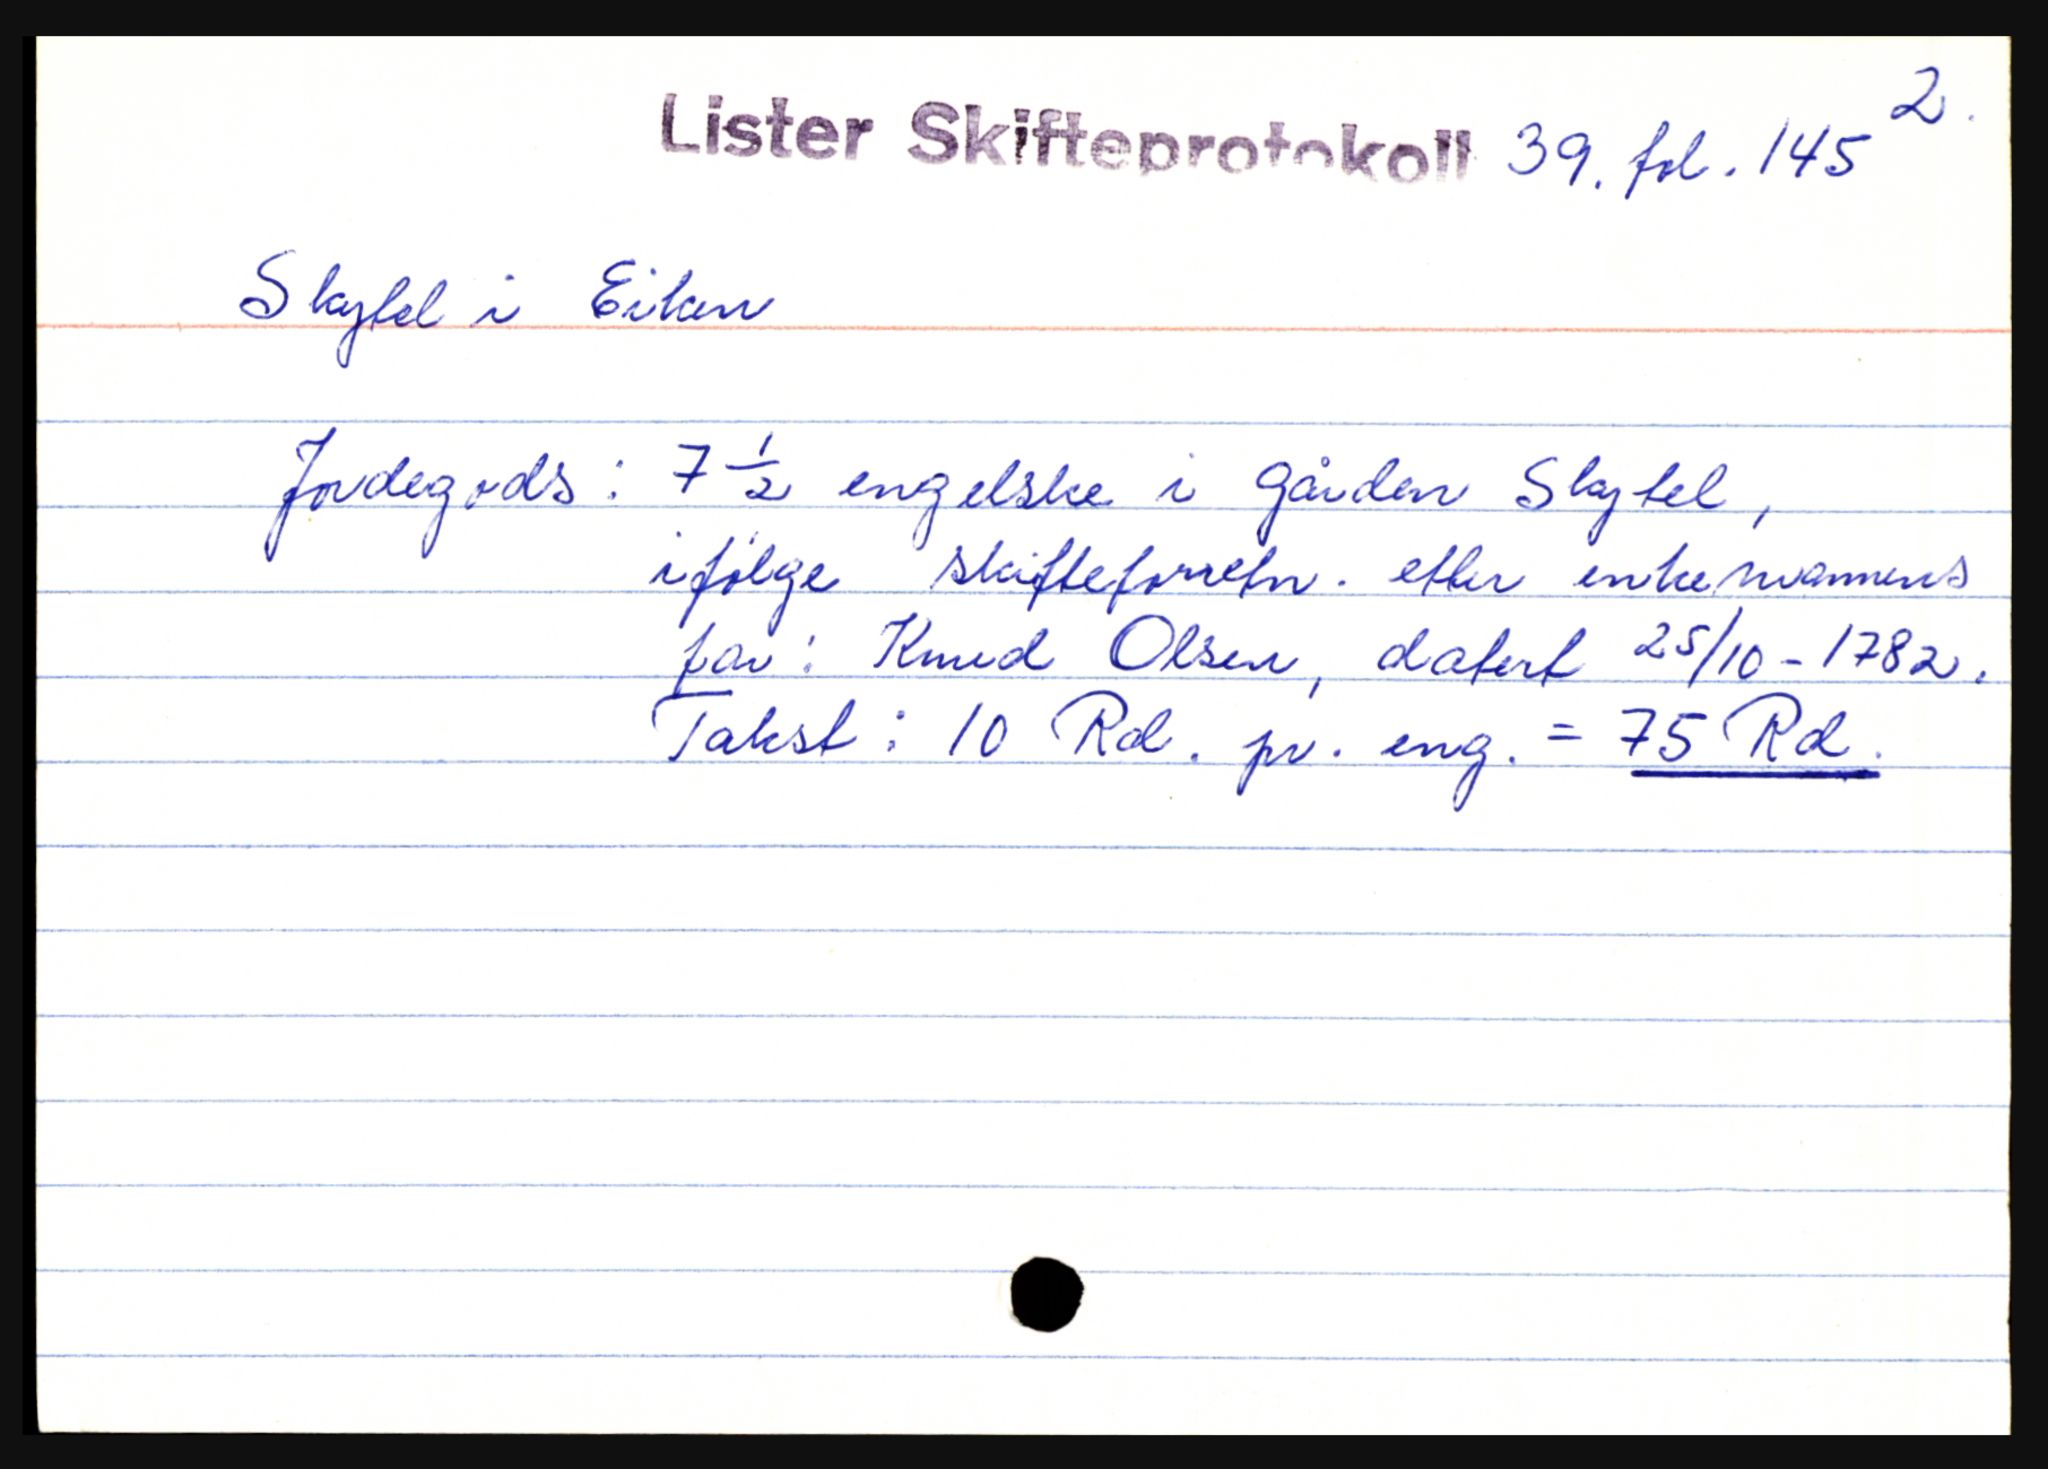 2.
Lister Skifteprotokoll 39. fol. 145
Skytel i Eiken
Jordegods : 7 ½ engelske i gården Skytel,
ifølge skifteforretn. etter enkemannens
far : Knud Olsen, datert 25/10 - 1782.
Takst : 10 Rd. pr. eng. = 75 Rd.